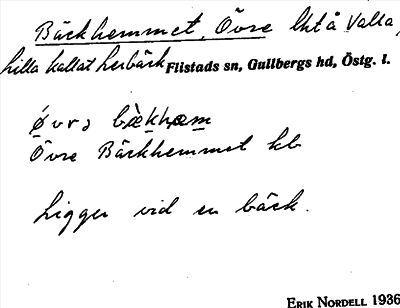 Bäckhemmet, Övre
lilla kallat herbäck Flistads sn, Gullbergs hd, Östg. l.
Övre Bäckhemmet kb
Ligger vid en bäck.
ERIK NORDELL 1936